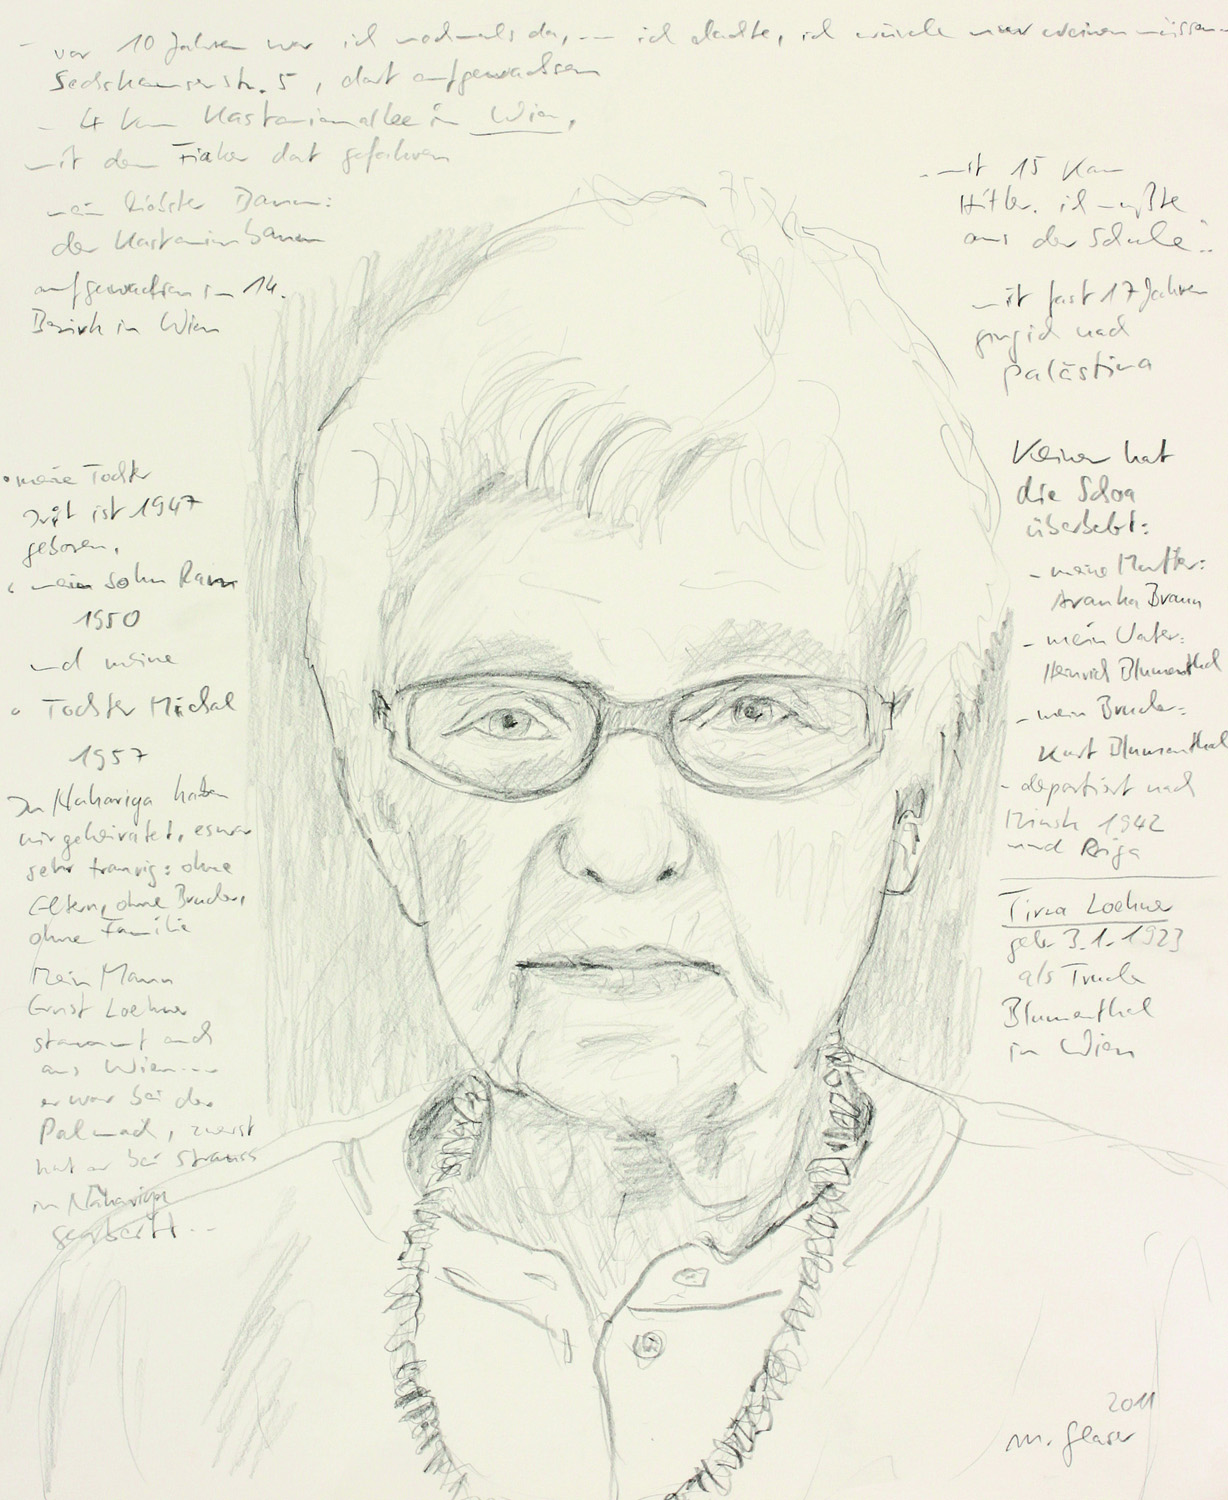 - vor 10 Jahren war ich nochmals da, --- ich dachte, ich würde nur weinen müssen...
Sechshauserstr. 5, dort aufgewachsen
- 4 km Kastanienallee in Wien,
mit dem Fiaker dort gefahren
mein liebster Baum:
der Kastanienbaum
aufgewachsen im 14.
Bezirk in Wien
• meine Tochter
ist 1947
geboren,
• mein Sohn Ram
1950
und meine
• Tochter Michal
1957
In Nahariya haben
wir geheiratet, es war
sehr traurig: ohne
Eltern, ohne Bruder,
ohne Familie
Mein Mann
Ernst Loehner
stammt auch
aus Wien....
er war bei der
Palmach, zuerst
hat er bei Strauss
in Nahariya
gearbeitet...
- mit 15 kam
Hitler. ich mußte
aus der Schule..
- mit fast 17 Jahren
ging ich nach
Palästina
Keiner hat
die Schoa
überlebt:
- meine Mutter:
Aranka Braun
- mein Vater:
Heinrich Blumenthal
- mein Bruder:
Kurt Blumenthal
- deportiert nach
Minsk 1942
und Riga
Tirza Loehner
geb. 3.1.1923
als Trude
Blumenthal
in Wien
2011
M. Glaser